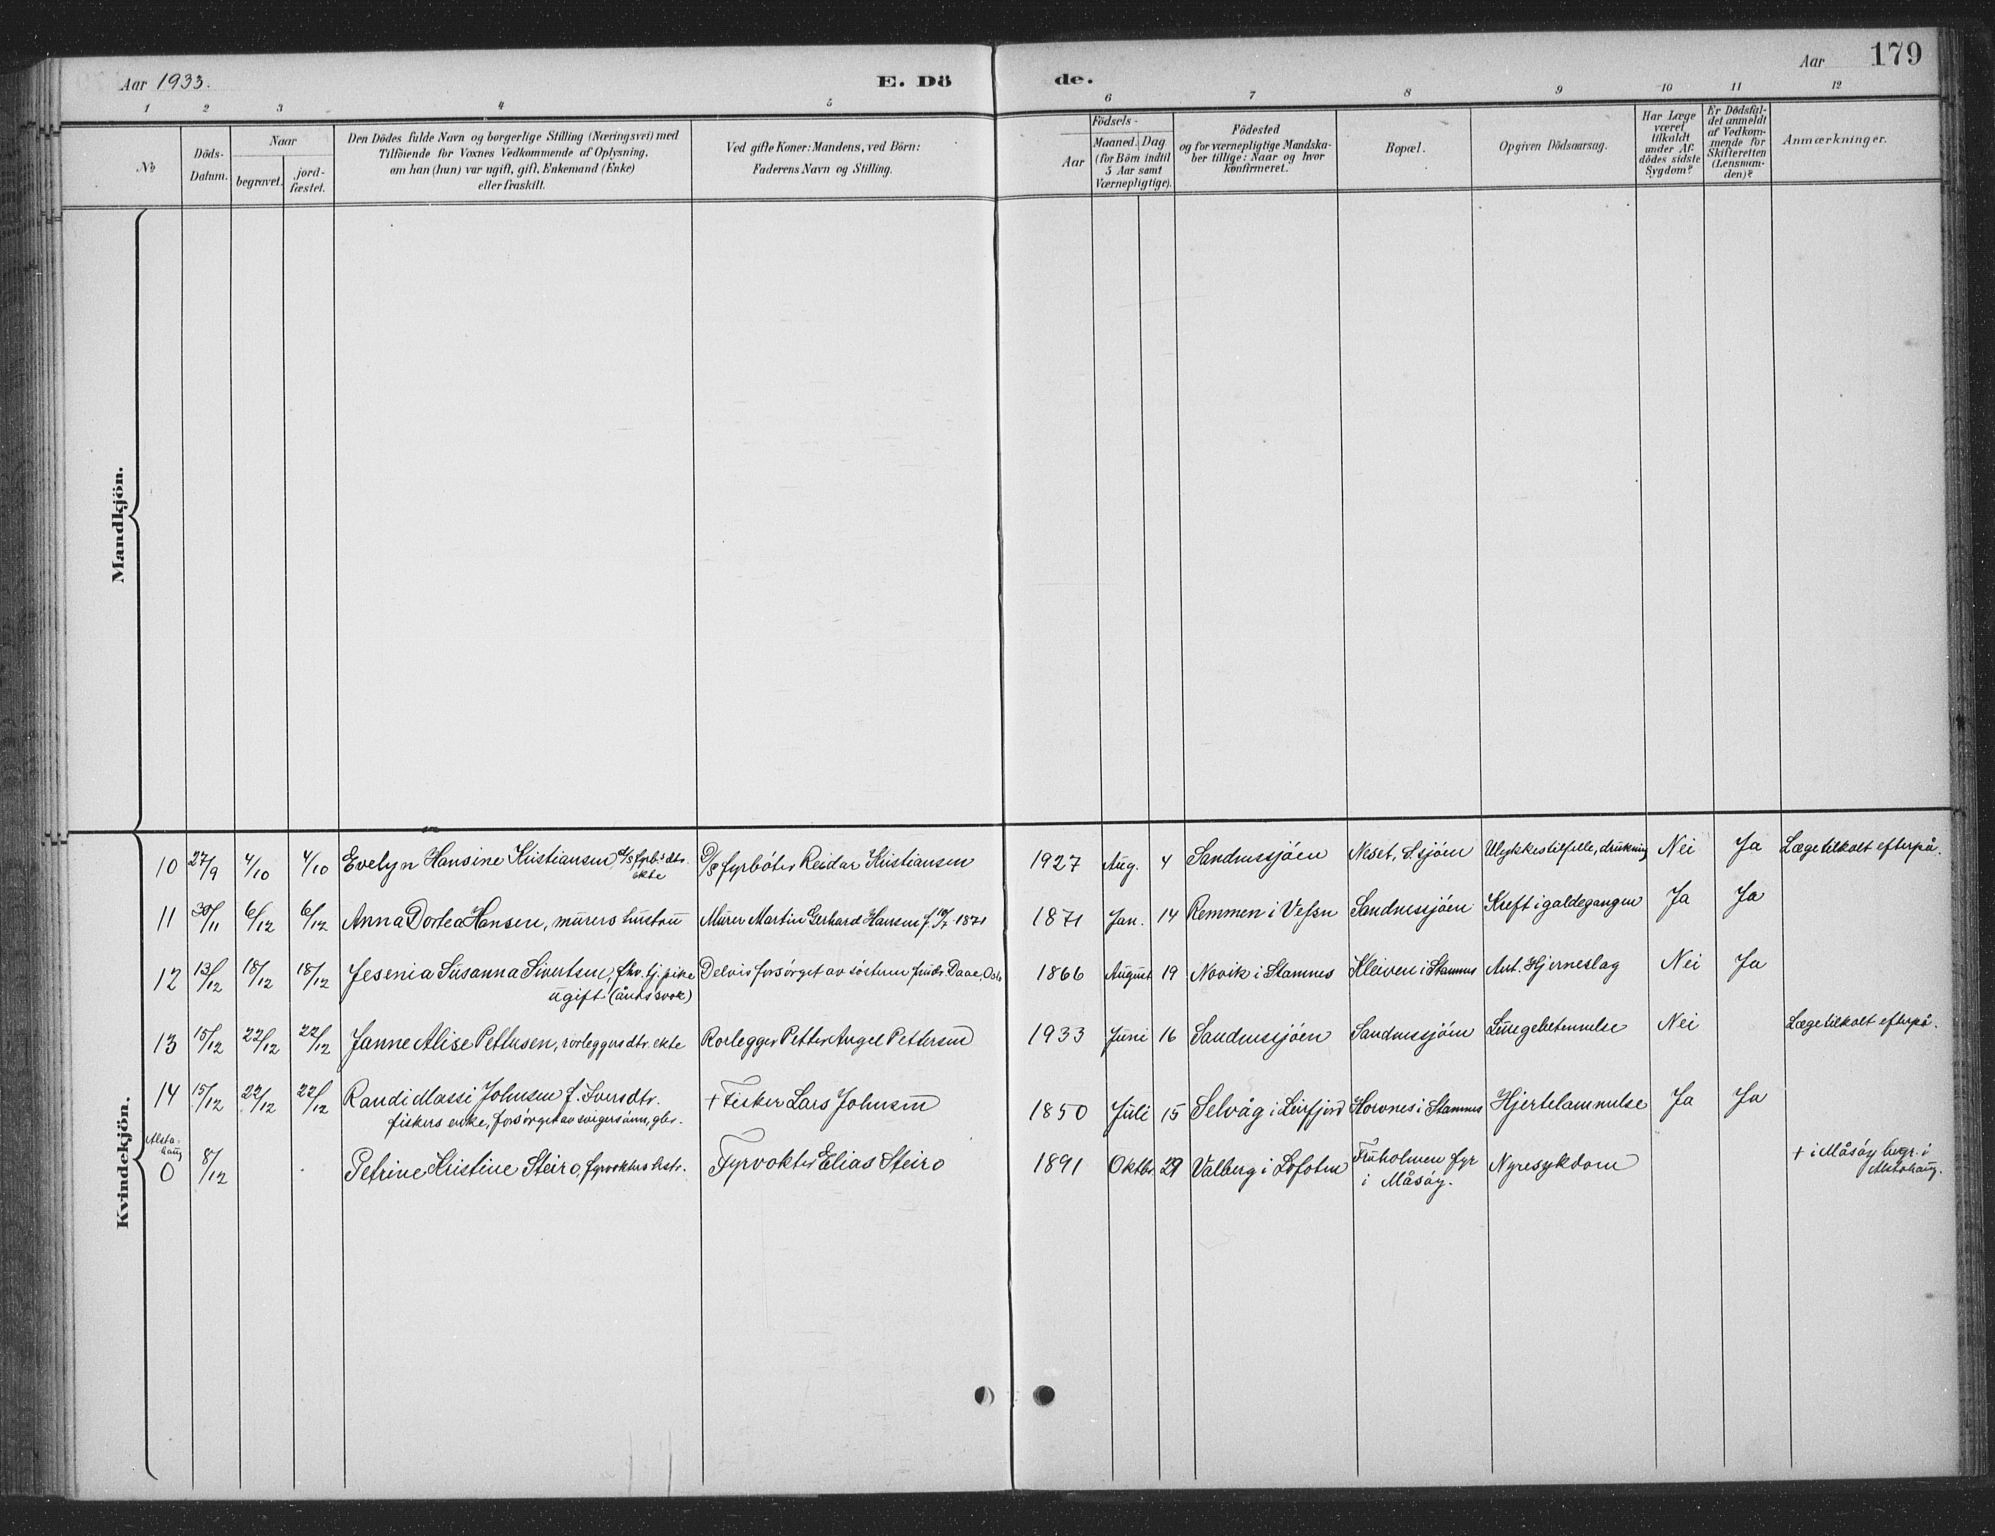 Aar 1933.
E. Dö
de.
Aar
179
1
2
3
4
5
6
7
8
9
10
11
12
No
Döds-
Datum.
Naar
begravet.
jord-
fæstet.
Den Dödes fulde Navn og borgerlige Stilling (Næringsvei) med
Tilföiende for Voxnes Vedkommende af Oplysning,
om han (hun) var ugift, gift, Enkemand (Enke)
eller fraskilt.
Ved gifte Koner: Mandens, ved Börn:
Faderens Navn og Stilling.
Födsels-
Aar
Maaned.
Dag
(for Börn indtil
5 Aar samt
Værnepligtige).
Födested
og for værnepligtige Mandska-
ber tillige: Naar og hvor
konfirmeret.
Bopæl.
Opgiven Dödsaarsag.
Har Læge
været
tilkaldt
under Af-
dödes sidste
Sygdom?
Er Dödsfal-
det anmeldt
af Vedkom-
mende for
Skifteretten
(Lensman-
den)?
Anmærkninger.
Mandkjön.
Kvindekjön.
10 27/9 4/10 4/10 Evelyn Hansine Kristiansen d/s fyrb's dtr. D/s fyrbøter Reidar Kristiansen 1927 Aug. 4 Sandnessjøen Neset, S.sjøen Ulykkestilfelle, drukning Nei Ja Læge tilkalt efterpå.
ekte
11 30/11 6/12 6/12 Anna Dortea Hansen, murers hustru Murer Martin Gerhard Hansen f. 10/7 1871 1871 Jan. 14 Remmen i Vefsn Sandnessjøen Kreft i galdegangen Ja Ja
12 13/12 18/12 18/12 Jesenia Susanna Sivertsen, fhv. tj. pike Delvis forsørget av søsteren Daae, Oslo 1866 August 19 Novik i Stamnes Kleiven i Stamnes Ant. Hjerneslag Nei Ja
ugift (åndssvak)
13 15/12 22/12 22/12 Janne Alise Pettersen, rørleggers dtr. ekte Rørlegger Petter Angel Pettersen 1933 Juni 16 Sandnessjøen Sandnessjøen Lungebetennelse Nei Læge tilkalt efterpå.
14 15/12 22/12 22/12 Randi Massi Johnsen f. Iversdtr. + Fisker Lars Johnsen 1850 Juli 15 Selvåg i Leirfjord Horvnes i Stamnes Hjertelammelse Ja Ja
fiskers enke, forsørget av svigersønn,
Alsta-
haug
0 8/12 Petrine Kristine Steiro, fyrvokters hstr. Fyrvokter Elias Steiro 1891 Oktbr. 29 Valberg i Lofoten Fruholmen fyr Nyresykdom + i Måsøy begr. i
i Måsøy. Alstahaug.